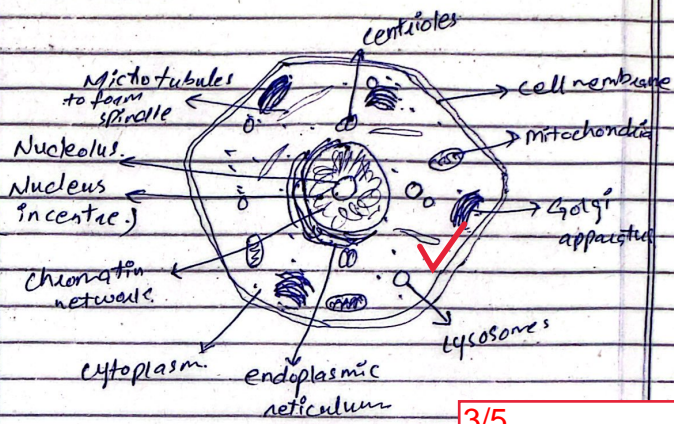 centrioles
Microtubules
to form
spindle
cell membrane
Nucleolus.
mitochondria
Nucleus
in centre)
Golgi
apparatus
Chromatin
network.
Lysosomes
cytoplasm.
endoplasmic
reticulum
3/5